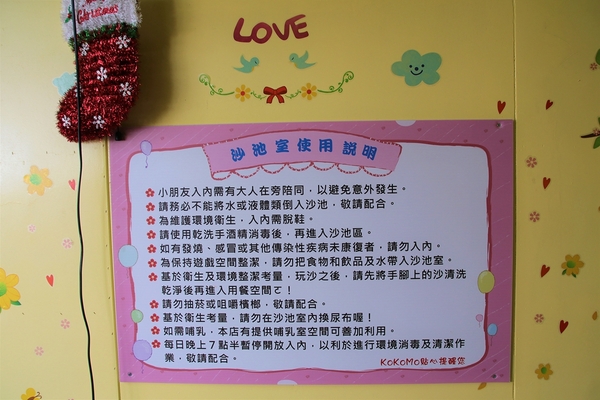 LOVE
沙池室使用說明
小朋友入內需有大人在旁陪同，以避免意外發生。
請務必不能將水或液體類倒入沙池，敬請配合。
為維護環境衛生，入內需脫鞋。
請使用乾洗手酒精消毒後，再進入沙池區。
如有發燒、感冒或其他傳染性疾病未康復者，請勿入內。
為保持遊戲空間整潔，請勿把食物和飲品及水帶入沙池室。
基於衛生及環境整潔考量，玩沙之後，請先將手腳上的沙清洗
乾淨後再進入用餐空間ㄛ！
請勿抽菸或咀嚼檳榔，敬請配合。
基於衛生考量，請勿在沙池室內換尿布喔！
如需哺乳，本店有提供哺乳室空間可善加利用。
每日晚上7點半暫停開放入內，以利於進行環境消毒及清潔作
業，敬請配合。
KOKOMO貼心提醒您